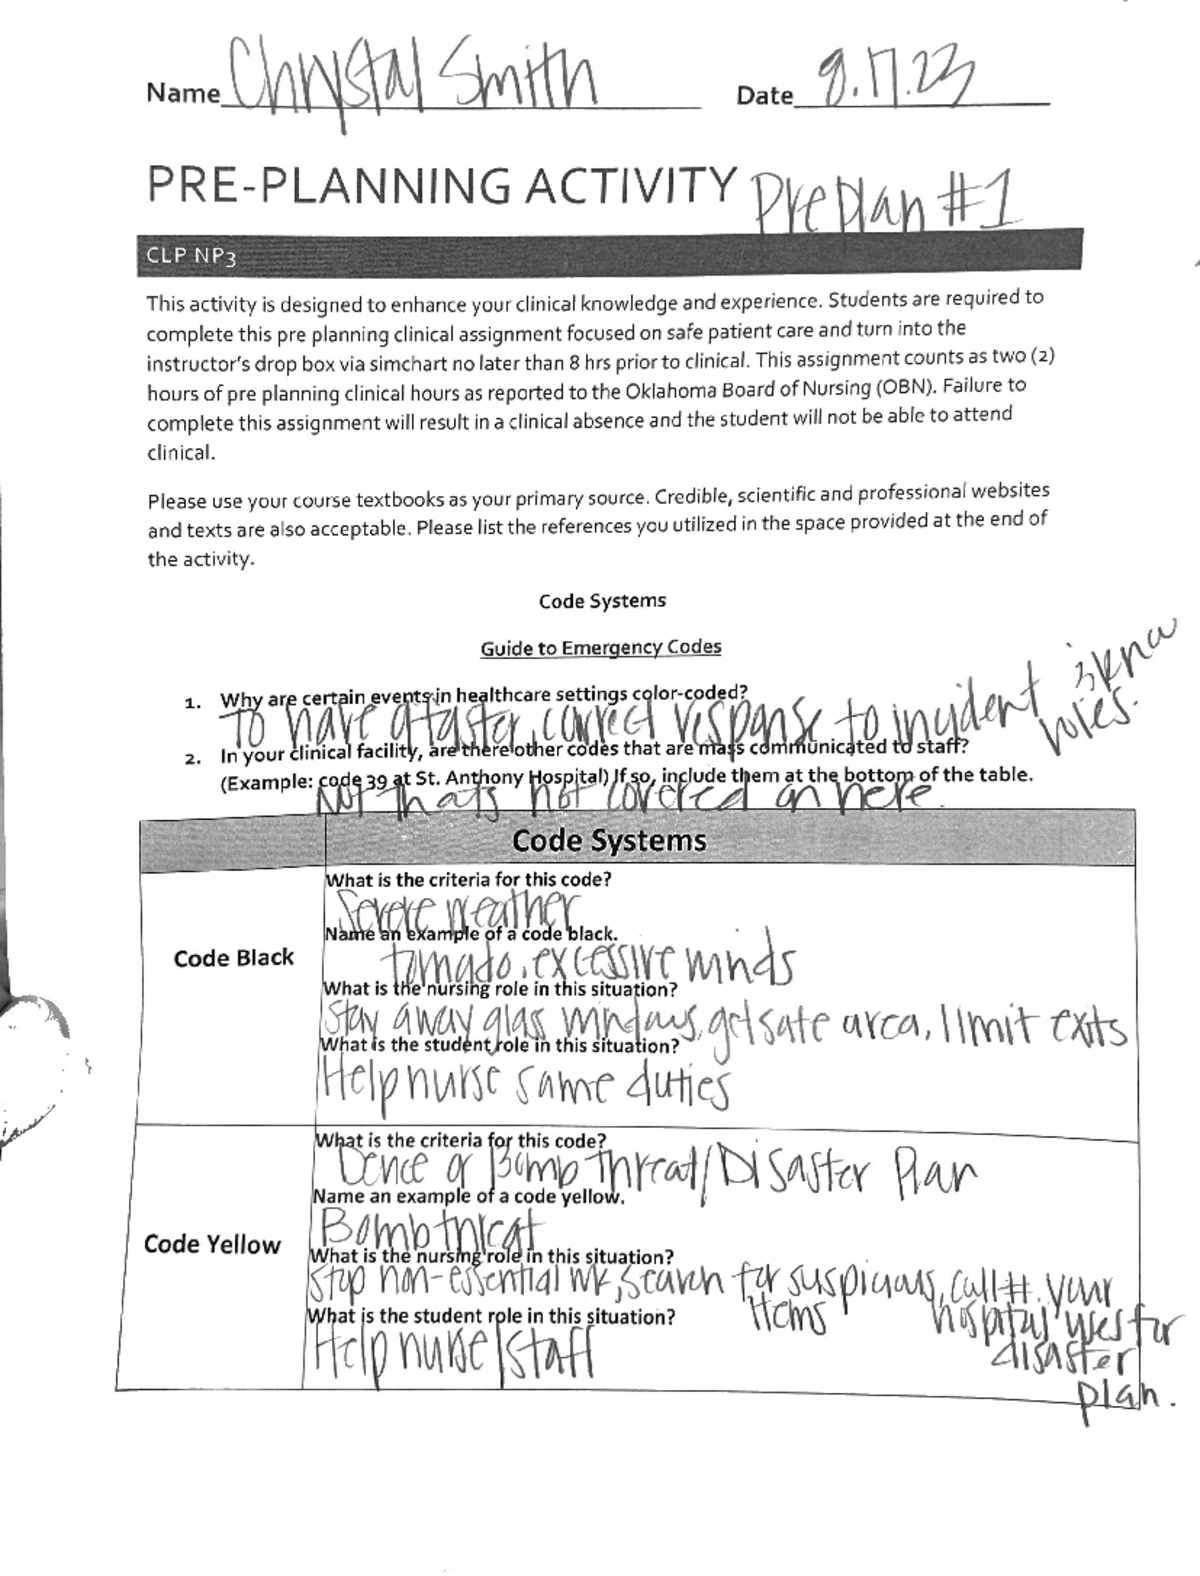 Name Chrystal Smith Date 8.17.23
PRE-PLANNING ACTIVITY Preplan #1
CLP NP3
This activity is designed to enhance your clinical knowledge and experience. Students are required to
complete this pre planning clinical assignment focused on safe patient care and turn into the
instructor's drop box via simchart no later than 8 hrs prior to clinical. This assignment counts as two (2)
hours of pre planning clinical hours as reported to the Oklahoma Board of Nursing (OBN). Failure to
complete this assignment will result in a clinical absence and the student will not be able to attend
clinical.
Please use your course textbooks as your primary source. Credible, scientific and professional websites
and texts are also acceptable. Please list the references you utilized in the space provided at the end of
the activity.
Code Systems
Guide to Emergency Codes
1. Why are certain events in healthcare settings color-coded?
To have a faster, correct response to incident
roles.
2. In your clinical facility, are there other codes that are mass communicated to staff?
(Example: code 39 at St. Anthony Hospital) If so, include them at the bottom of the table.
Not thats not covered on here.
Code Systems
Code Black
What is the criteria for this code?
Severe weather
Name an example of a code black.
tornado, excessive winds
What is the nursing role in this situation?
Stay away glas windows, get safe area, limit exits
What is the student role in this situation?
Help nurse same duties
Code Yellow
What is the criteria for this code?
or Bomb threat/Disaster Plan
Name an example of a code yellow.
Bomb threat
What is the nursing role in this situation?
Stop non-essential wk, search for suspicious, call #. your
items hospital uses for
disaster
plan.
What is the student role in this situation?
Help nurse/staff